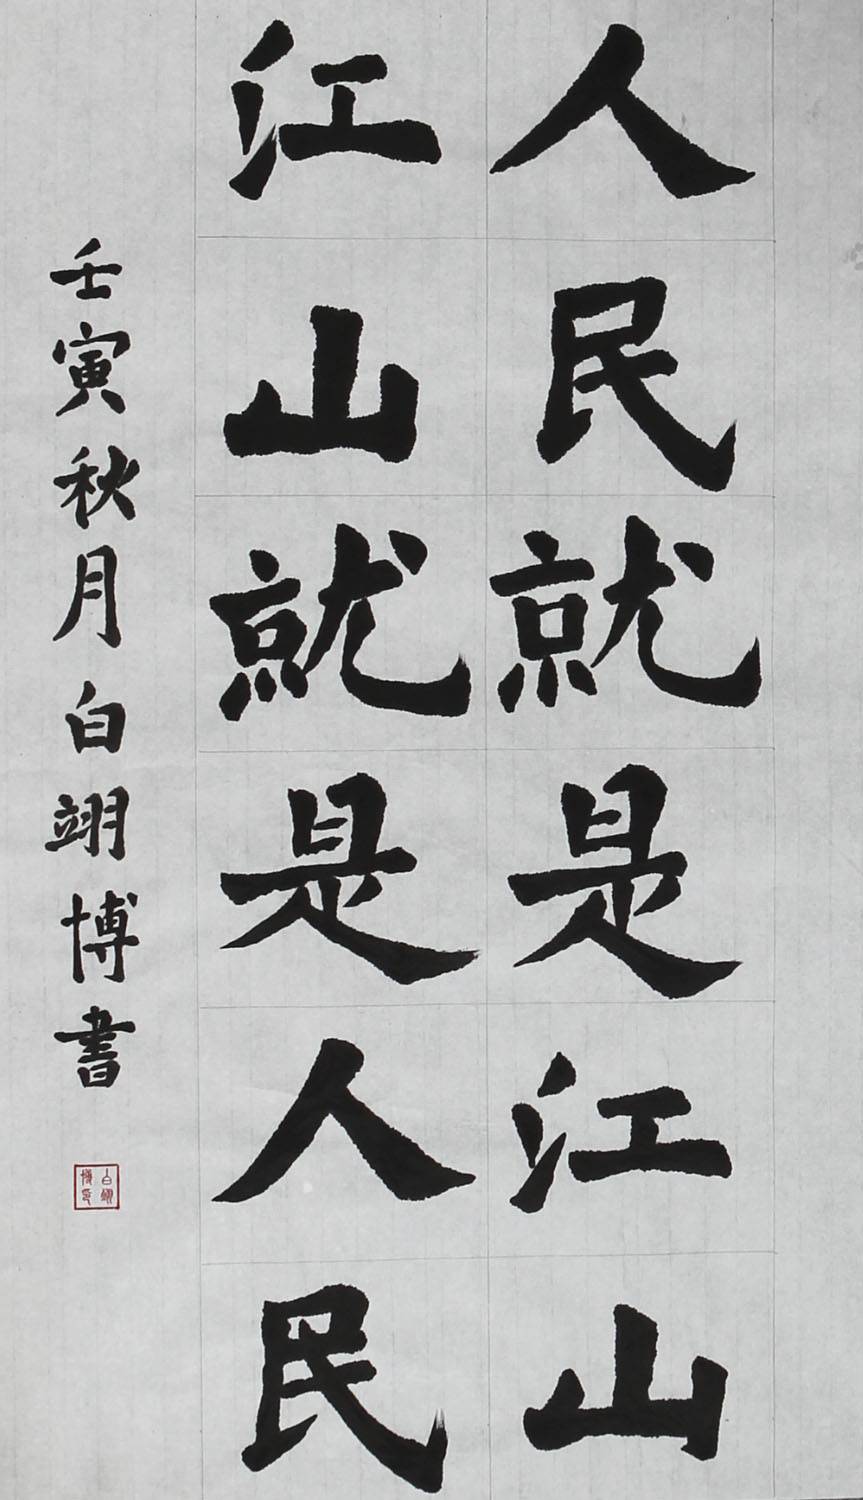 人民就是江山
江山就是人民
壬寅秋月白翊博書